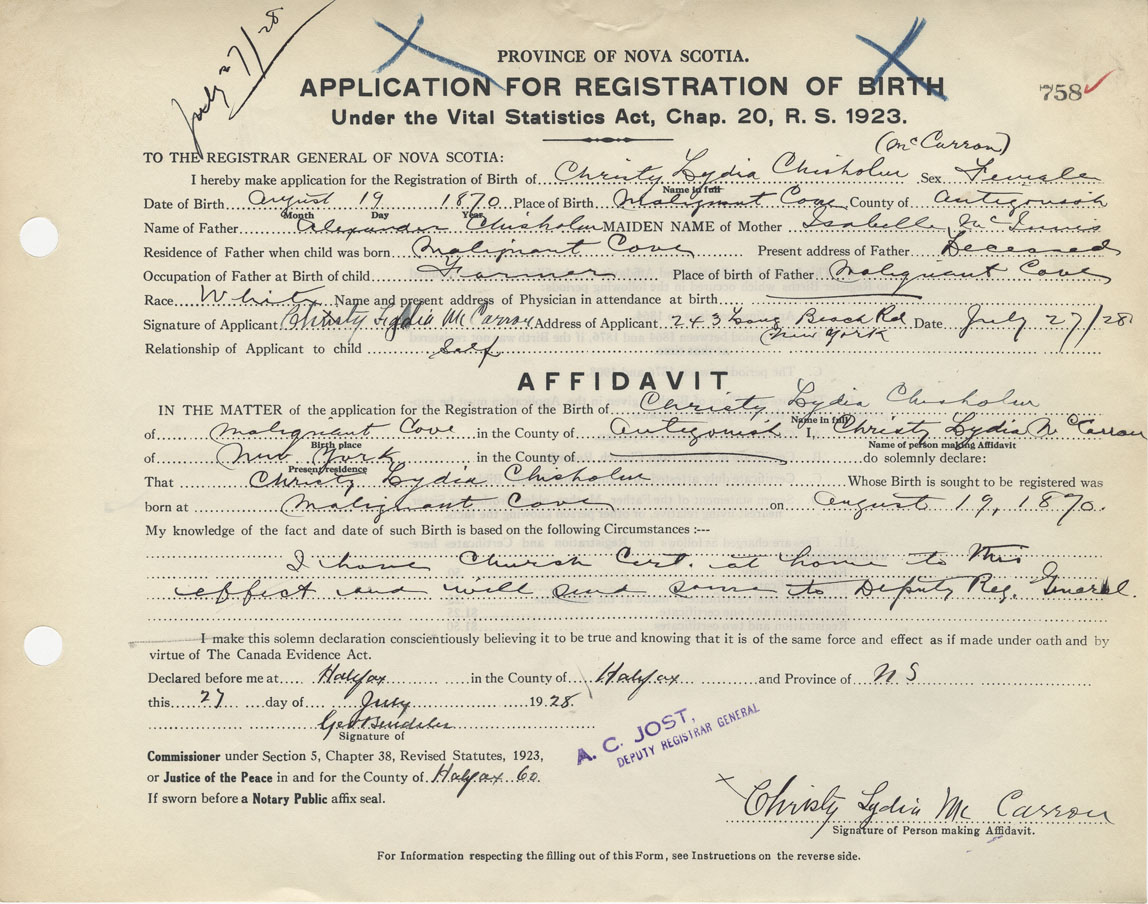 July 27/28
PROVINCE OF NOVA SCOTIA.
APPLICATION FOR REGISTRATION OF BIRTH
758
Under the Vital Statistics Act, Chap. 20, R. S. 1923.
(McCarron)
TO THE REGISTRAR GENERAL OF NOVA SCOTIA:
I hereby make application for the Registration of Birth of Christy Lydia Chisholm Sex Female
Name in full
Date of Birth August 19 1870 Place of Birth Malignant Cove County of Antigonish
Month Day Year
Name of Father Alexander Chisholm MAIDEN NAME of Mother Isabella McInnis
Residence of Father when child was born Malignant Cove Present address of Father Deceased
Occupation of Father at Birth of child Farmer Place of birth of Father Malignant Cove
Race White Name and present address of Physician in attendance at birth
Signature of Applicant Christy Lydia McCarron Address of Applicant 243 Long Beach Rd Date July 27/28
New York
Relationship of Applicant to child Self
AFFIDAVIT
IN THE MATTER of the application for the Registration of the Birth of Christy Lydia Chisholm
Name in full
of Malignant Cove in the County of Antigonish I, Christy Lydia McCarron
Birth place Name of person making Affidavit
of New York in the County of do solemnly declare:
Present residence
That Christy Lydia Chisholm Whose Birth is sought to be registered was
born at Malignant Cove on August 19, 1870.
My knowledge of the fact and date of such Birth is based on the following Circumstances :---
I have Church Cert. at home to this
effect and will send same to Deputy Reg. General.
I make this solemn declaration conscientiously believing it to be true and knowing that it is of the same force and effect as if made under oath and by
virtue of The Canada Evidence Act.
Declared before me at Halifax in the County of Halifax and Province of N S
this 27 day of July 1928.
Signature of
A. C. JOST,
DEPUTY REGISTRAR GENERAL
Commissioner under Section 5, Chapter 38, Revised Statutes, 1923,
or Justice of the Peace in and for the County of Halifax Co.
If sworn before a Notary Public affix seal.
Christy Lydia McCarron
Signature of Person making Affidavit.
For Information respecting the filling out of this Form, see Instructions on the reverse side.